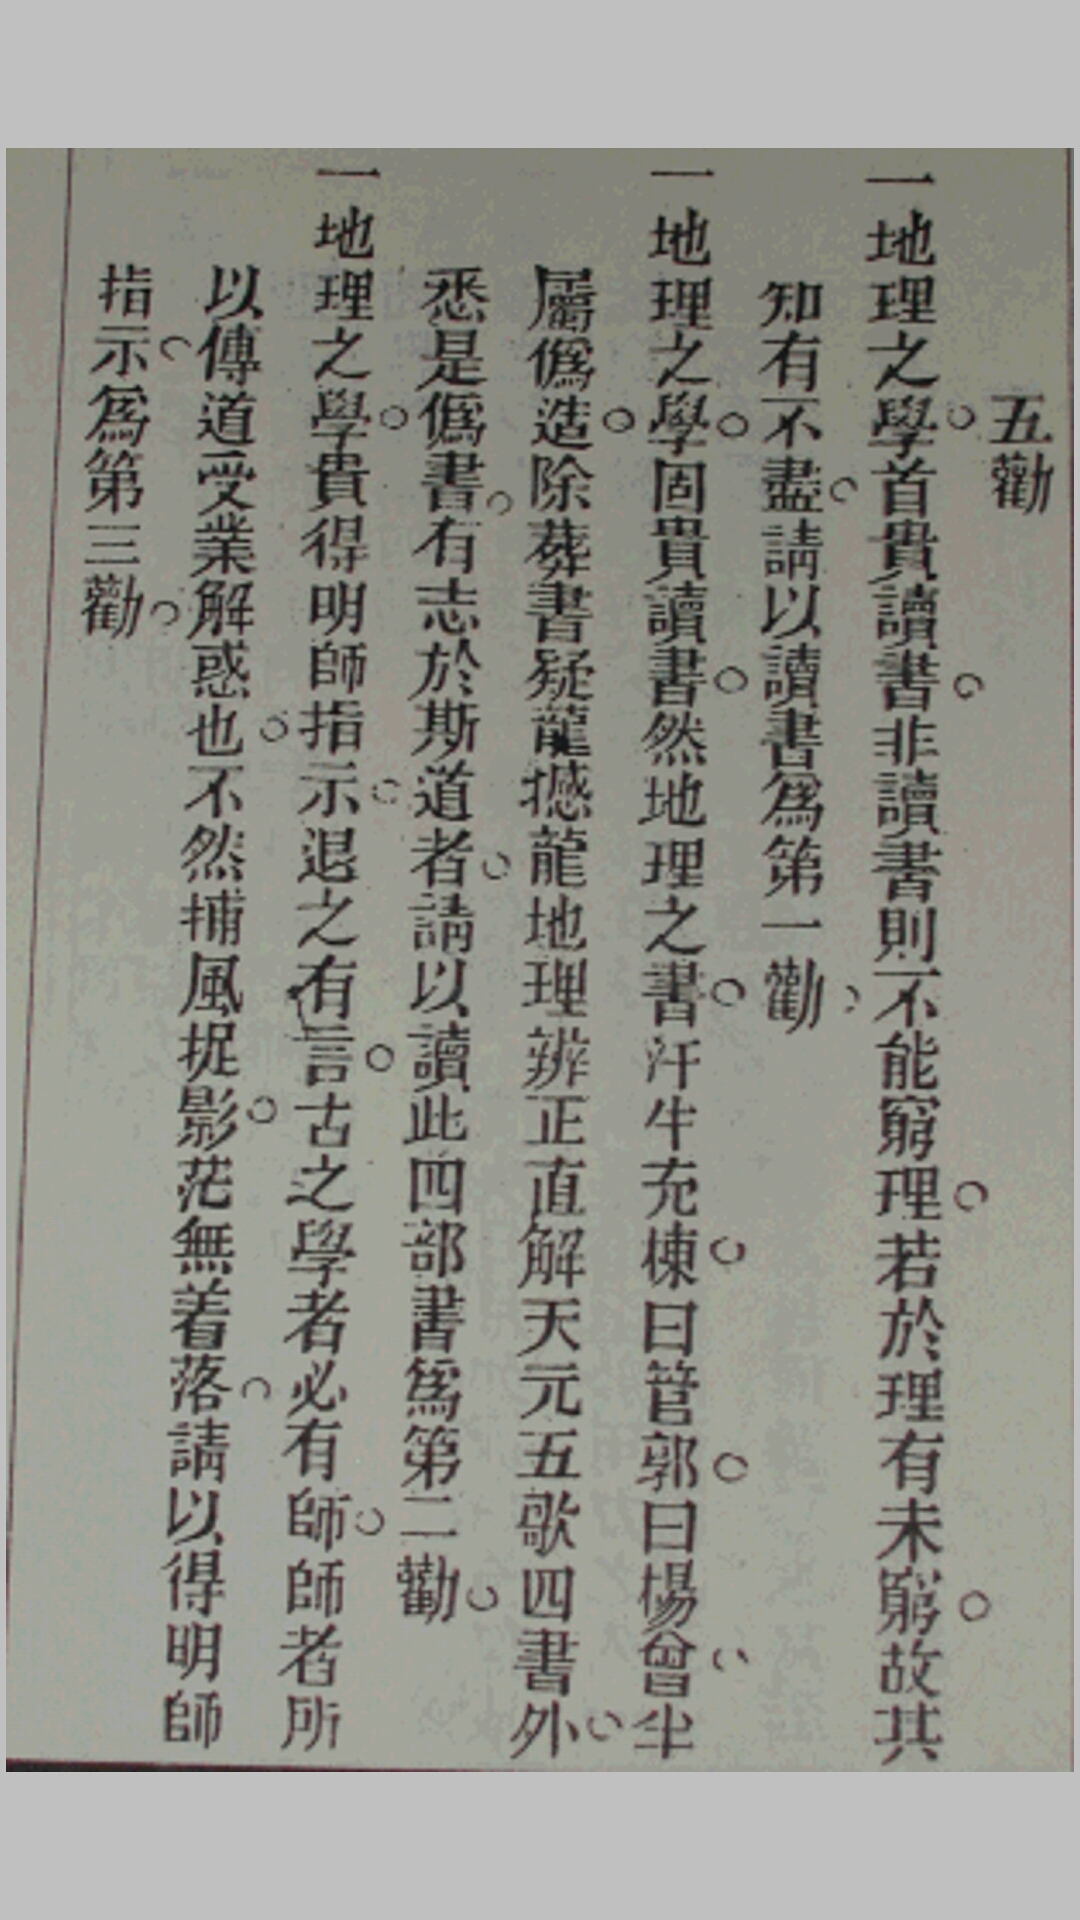 五勸
一地理之學首貴讀書非讀書則不能窮理若於理有未窮故其
知有不盡請以讀書爲第一勸
一地理之學固貴讀書然地理之書汗牛充棟曰管郭曰楊曾半
屬僞造除葬書疑龍撼龍地理辨正直解天元五歌四書外
悉是僞書有志於斯道者請以讀此四部書爲第二勸
一地理之學貴得明師指示退之有言古之學者必有師師者所
以傳道受業解惑也不然捕風捉影茫無着落請以得明師
指示爲第三勸